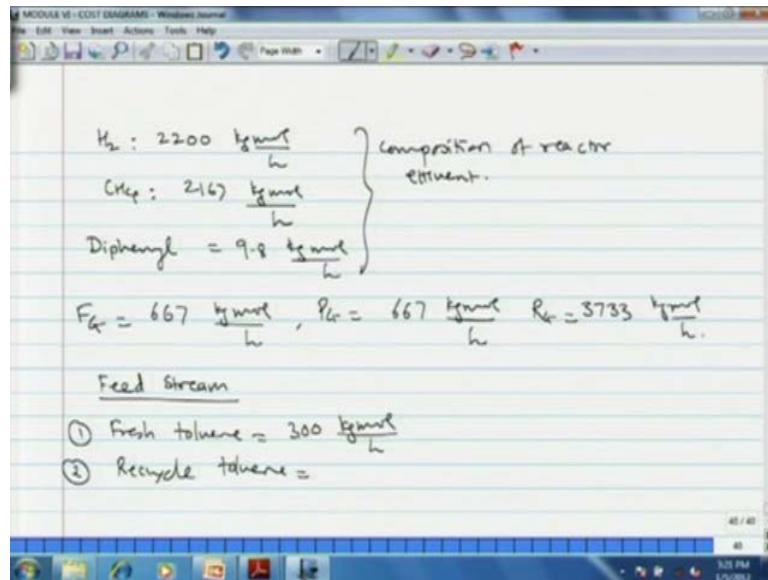 MODULE VI - COST DIAGRAMS - Windows Journal
File Edit View Insert Actions Tools Help
Page Width
H₂ : 2200 kgmol/h
CH₄ : 2167 kgmol/h
Diphenyl = 9.8 kgmol/h
} composition of reactor effluent.
F_G = 667 kgmol/h, P_G = 667 kgmol/h R_G = 3733 kgmol/h.
Feed Stream
① Fresh toluene = 300 kgmol/h
② Recycle toluene =
40 / 40
40
3:21 PM